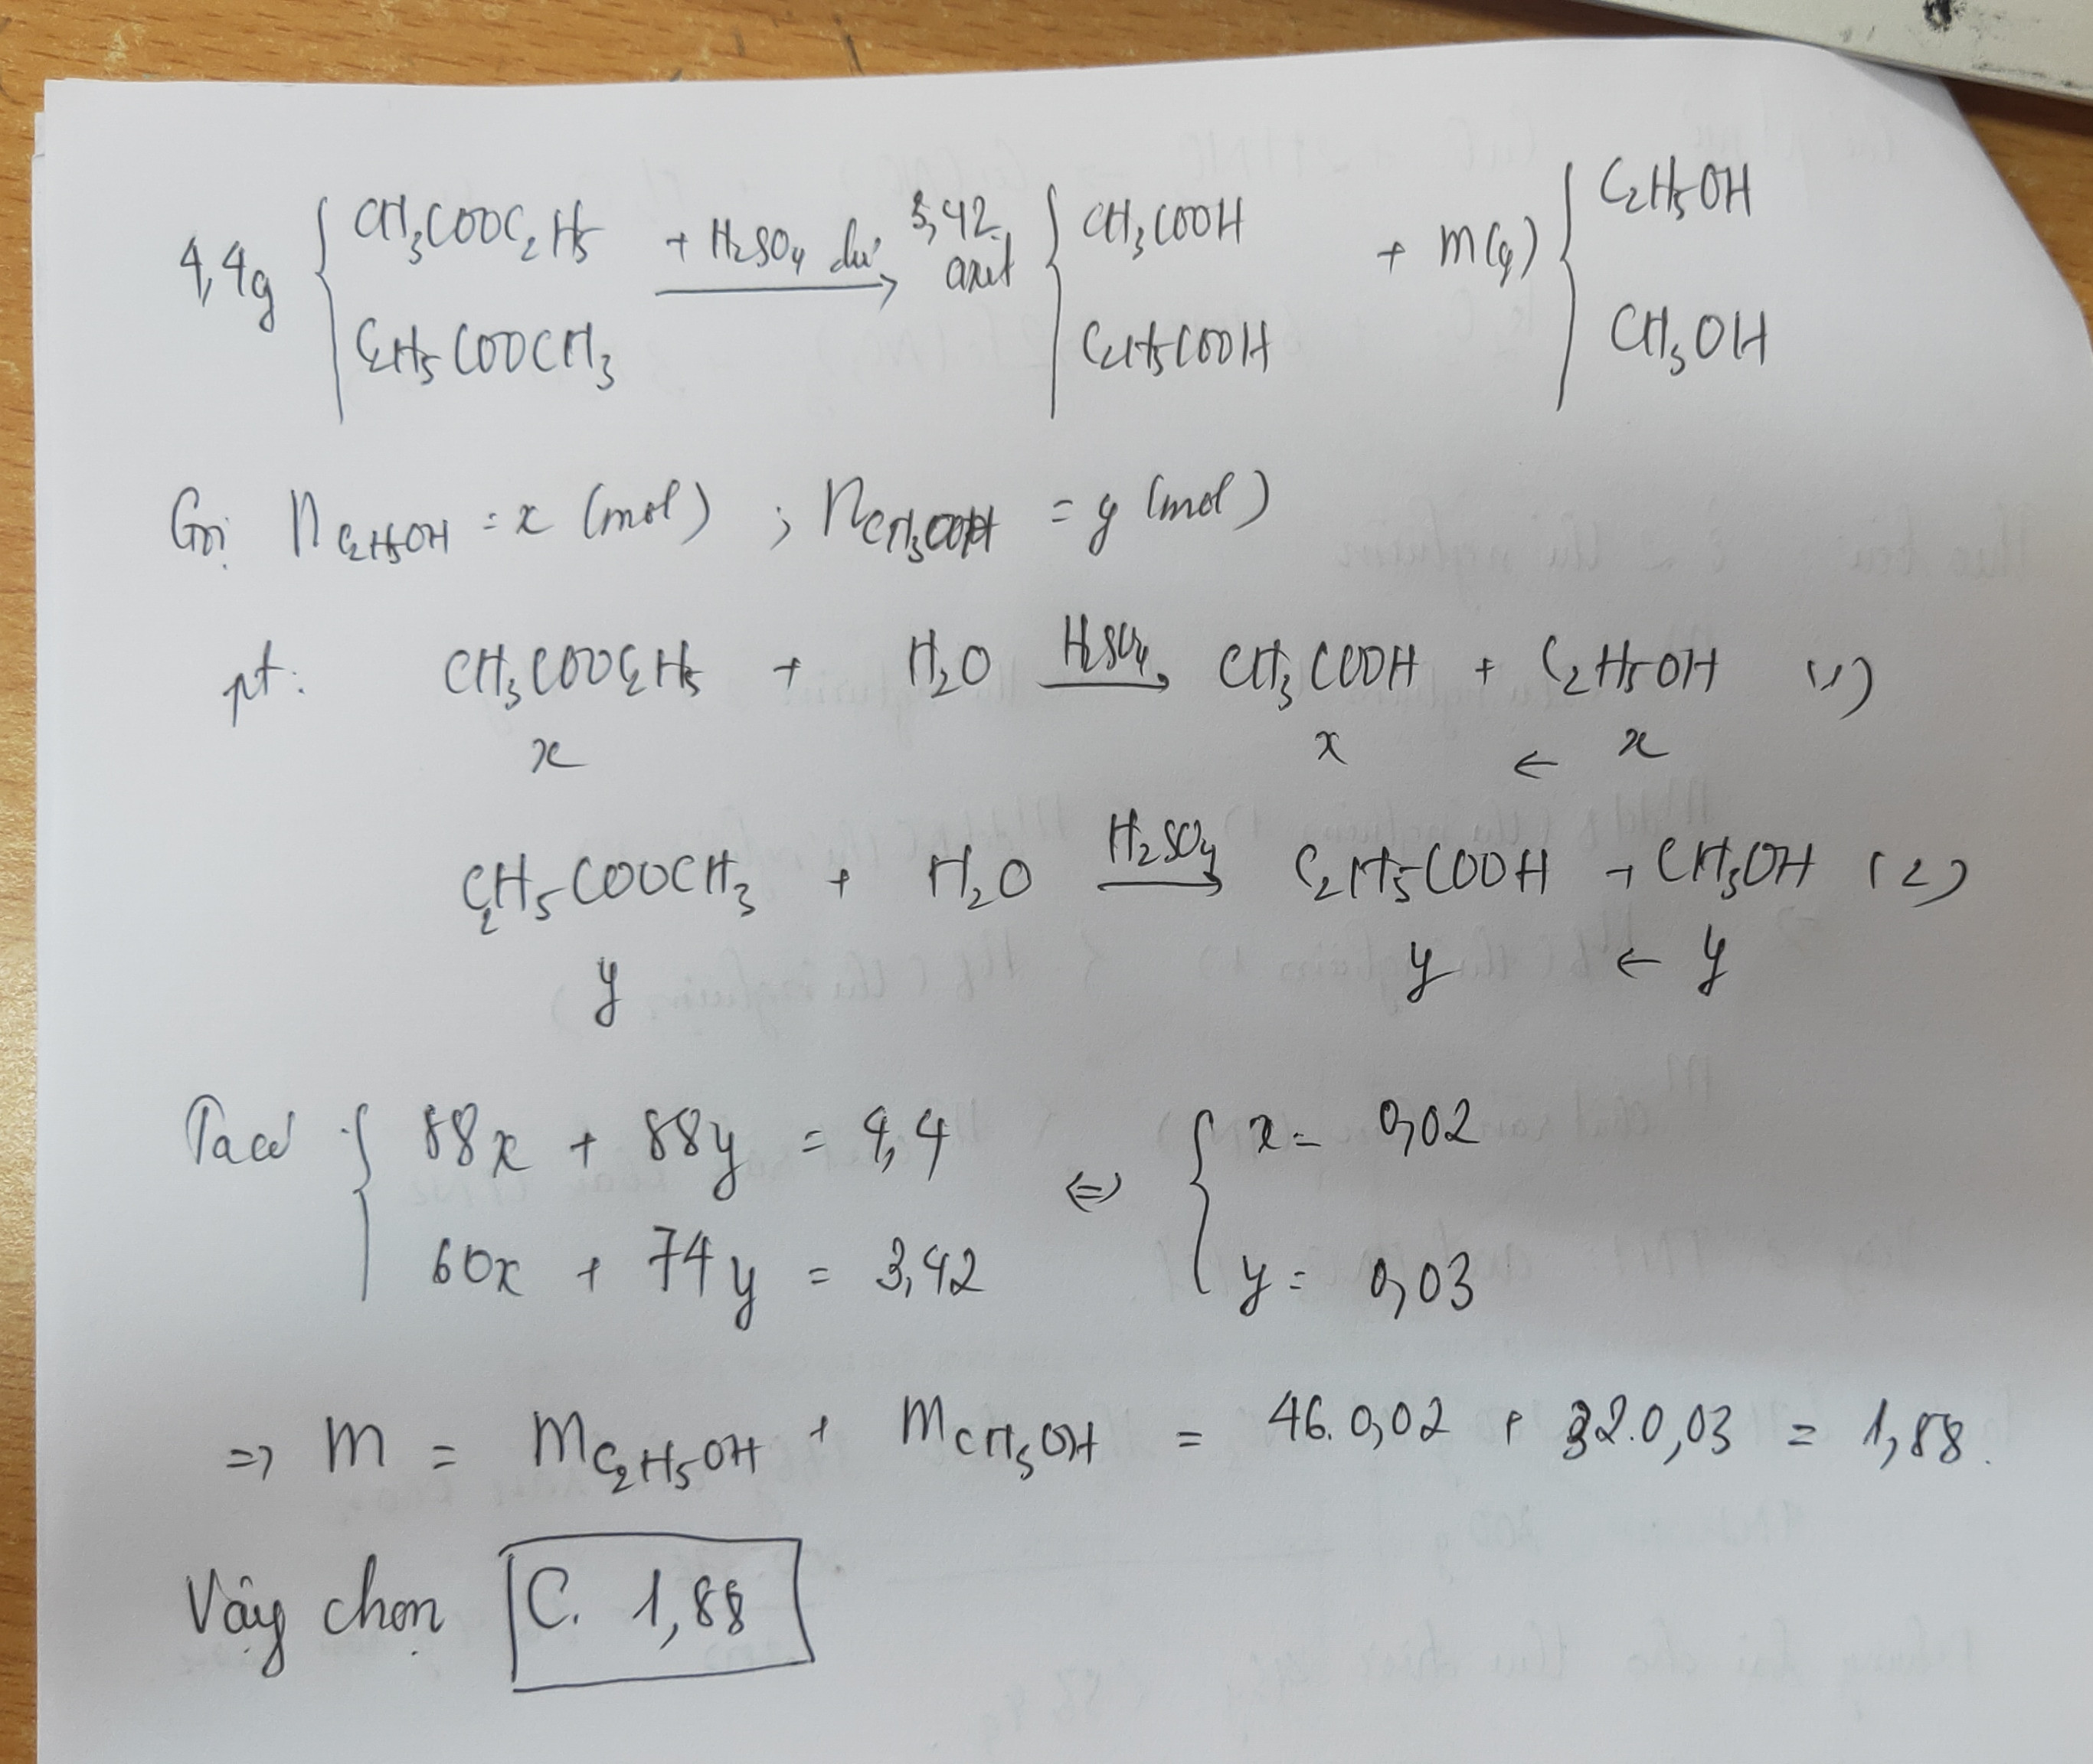 4,4g { CH3COOC2H5 + H2SO4 dư → 3,42 axit { CH3COOH + m(g) { C2H5OH
C2H5COOCH3 C2H5COOH CH3OH
Gọi nC2H5OH = x (mol) ; nCH3OH = y (mol)
pt: CH3COOC2H5 + H2O H2SO4→ CH3COOH + C2H5OH (1)
x x ← x
C2H5COOCH3 + H2O H2SO4→ C2H5COOH + CH3OH (2)
y y ← y
Ta có { 88x + 88y = 4,4 ⇔ { x = 0,02
60x + 74y = 3,42 y = 0,03
=> m = mC2H5OH + mCH3OH = 46.0,02 + 32.0,03 = 1,88.
Vậy chọn C. 1,88